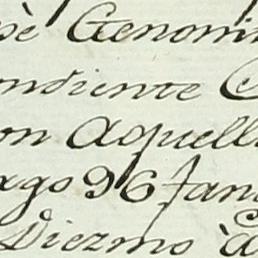 sè Genoni
ndiente C
on Aquell
rgo 96 fan
Diezmo à